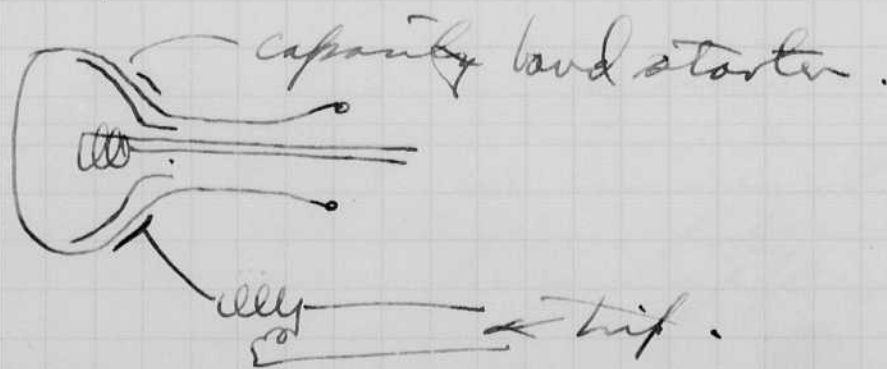 capacity band starter.
trip.